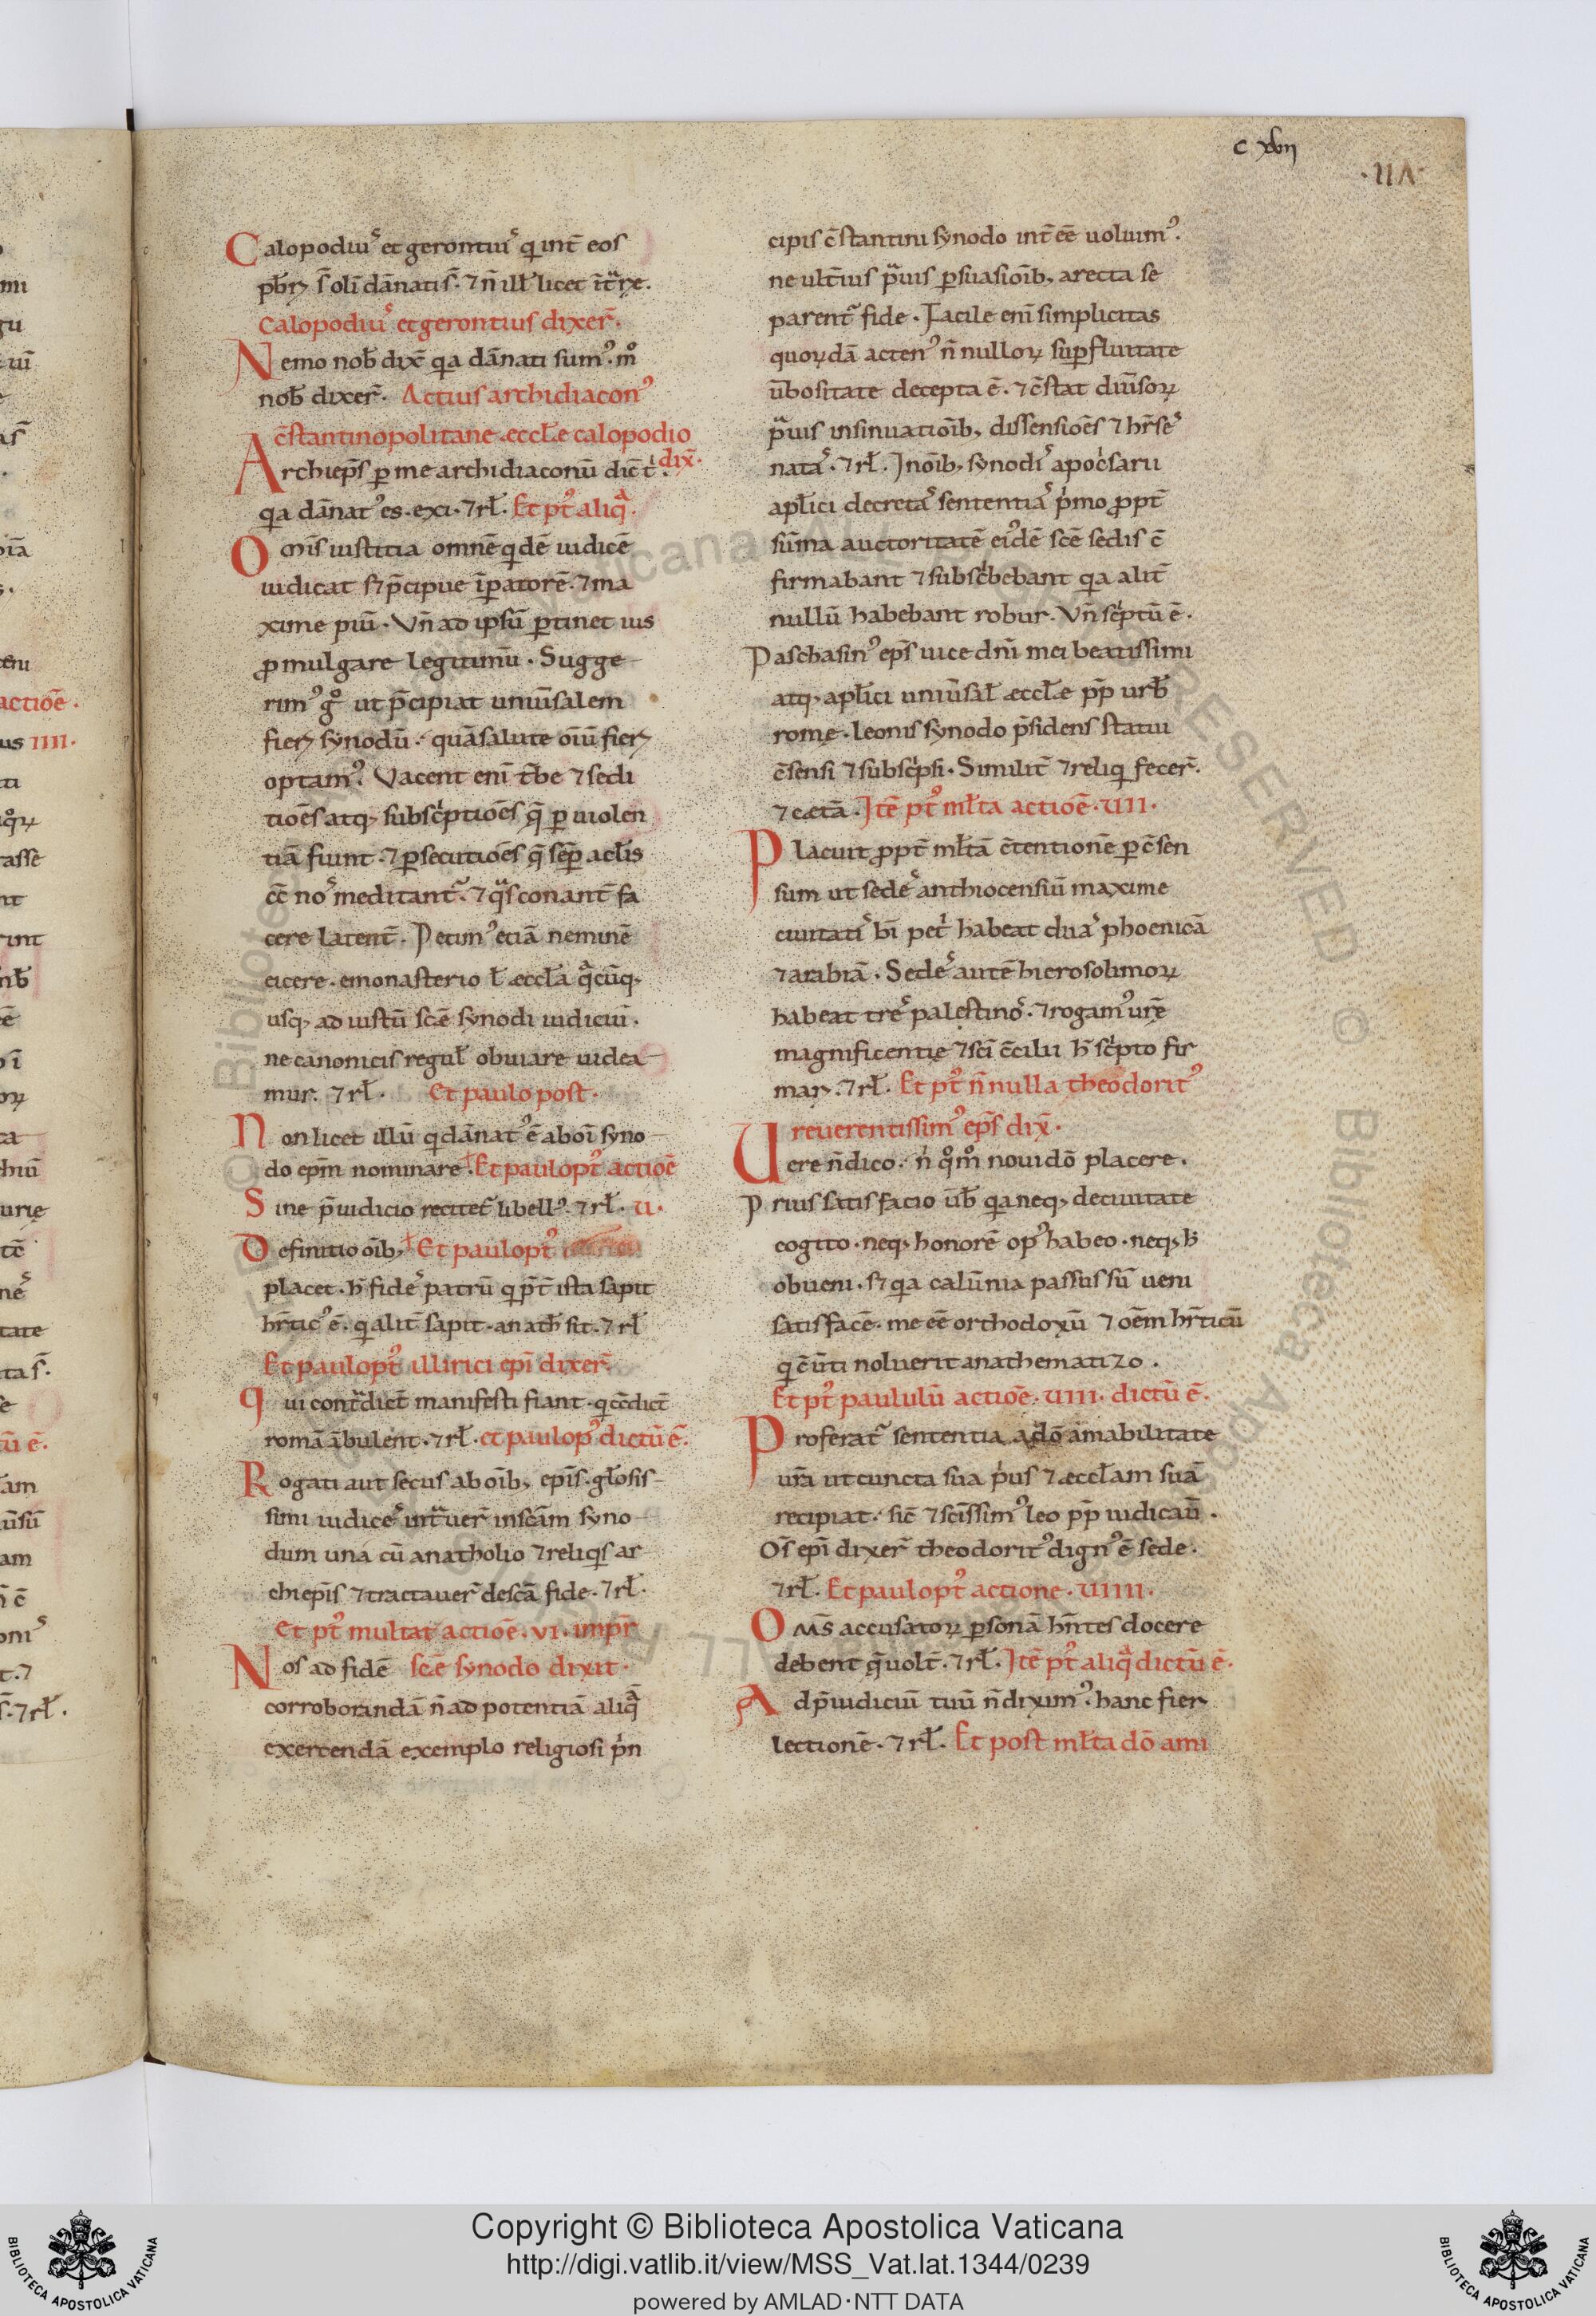 c xvii
·IIΛ·
Calopodiuˢ et gerontiuˢ q̇ int̄ eoſ
pb̄rꝫ s̄ olī dānati s̄. ⁊ n̄ ill̄ licet
Calopodiuˢ et gerontiuſ dixer̄.
Nemo nob̄ dix̄ qa dānati ſumꝰ. m̊
nob̄ dixer̄. Actiuſ archidiaconꝰ
c̄ſtantinopolitane eccl̄e calopodio
dix̄.
Archiep̄s ꝑ me archidiaconū
qa dānatꝰ es. exi. ⁊ rł. Et pꝰt aliq̄.
Om̄iſ iuſtitia omnē q̇dē iudicē
iudicat sꝫ p̄cipue īꝑatorē. ⁊ ma
xime piū. Vn̄ ad ipſū ꝑtinet ius
ꝓmulgare legitimū. Sugge
rimꝰ g̊ ut p̄cipiat uniūſalem
fierꝫ ſynodū. quā ſalute oīū fierꝫ
optamꝰ. Vacent enī t̄be ⁊ ſedi
tiōeſ atqꝫ ſubſc̍ptiōeſ q̄ ꝑ uiolen
tiā fiunt. ⁊ ꝑſecutiōeſ q̄ ſēꝑ a cl̄is
cē noˢ meditant᷑. ⁊ q̄ſ conant̄ fa
cere latent̄. Petimꝰ etiā neminē
eicere. e monaſterio ł æccl̄a q̄cūqꝫ
uſqꝫ ad iuſtū ſcē ſynodi iudiciū.
ne canoniciſ regul̄ obuiare uidea
mur. ⁊ rł. Et paulo poſt.
Non licet illū q̇ dānatꝰ ē ab oī ſyno
do ep̄m nominare. Et paulo pꝰt actiōe
Sine p̄iudicio recitet᷑ libellꝰ. ⁊ rł. u.
Definitio oīb, Et paulo pꝰt
placet. h̄ fideˢ patrū q̇ p̄t̄ iſta ſapit
hr̄ticꝰ ē. q̇ alit̄ ſapit. anath̄ ſit. ⁊ rł
Et paulo pꝰt illirici ep̄i dixer̄.
qui contr̄dict̄ manifeſti fiant. q̇ c̄dict̄
romā ābulent. ⁊ rł. et paulo pꝰ dictū ē.
Rogati aut ſecus ab oīb, ep̄iſ. gl̄oſiſ
ſimi iudiceˢ intr̄uer̄ in ſcām ſyno
dum unā cū anatholio ⁊ reliq̇ſ ar
chiep̄iſ ⁊ tractauer̄ de ſcā fide. ⁊ rł.
Et pꝰt multat actiōe. vi. imp̄r
Nos ad fidē ſcē ſynodo dixit.
corroborandā n̄ ad potentiā aliq̄
exercendā exemplo religioſi p̍n
cipiſ c̄ſtantini ſynodo int̄ eē uoluimꝰ.
ne ult̄iuſ p̄uiſ ꝑſuaſiōib, a recta ſe
parent᷑ fide. Facile enī ſimplicitas
quorꝫdā actenꝰ n̄nullorꝫ ſuꝑfluitate
ūboſitate decepta ē. ⁊ c̄ſtat diūſorꝫ
p̄uiſ inſinuatiōib, diſſenſiōeſ ⁊ hr̄ſeˢ
nataˢ. ⁊ rł. In oīb, ſynodiˢ apoc̍ſarii
apl̄ici decretaˢ ſententiaˢ p̍mo ꝓpt̄
ſūma auctoritatē eiꝰdē ſcē ſedis c̄
firmabant ⁊ ſubſc̍bebant qa alit̄
nullū habebant robur. Vn̄ ſc̍ptū ē.
Paſchaſinꝰ ep̄ſ uice dn̄i mei beatiſſimi
atqꝫ apl̄ici uniūſal̄ æccl̄æ pp̄ urb̄
rome. leoniſ ſynodo p̄ſidenſ ſtatui
c̄ſenſi ⁊ ſubſc̍pſi. Similit̄ ⁊ reliq̇ fecer̄.
⁊ cætā. Itē pꝰt ml̄ta actiōe. uiii.
Placuit ꝓpt̄ ml̄tā c̄tentionē ꝑ c̄ſen
ſum ut ſedeˢ anthiocenſiū maxime
ciuitatiˢ bī pet̍ habeat duaˢ phoenicā
⁊ arabiā. Sedeˢ autē hieroſolimorꝫ
habeat treˢ paleſtinoˢ. ⁊ rogamꝰ ur̄e
magnificentie ⁊ ſcī c̄cilii h̄ ſc̍pto fir
marꝫ. ⁊ rł. Et pꝰt n̄nulla theodoritꝰ
reuerentiſſimꝰ ep̄ſ dix̄.
Uere n̄ dico. n̍ q̊m̊ noui dō placere.
Priuſ ſatiſfacio ūb qa neqꝫ de ciuitate
cogito. neqꝫ honorē opꝰ habeo. neqꝫ h̄
obueni. sꝫ qa calūnia paſſuſ ſū ueni
ſatiſfacē. me eē orthodoxū ⁊ oēm hr̄ticū
q̇ c̄uti noluerit anathematizo.
Et pꝰt paululū actiōe. uiii. dictū ē.
Proferat᷑ ſententia a dō amabilitate
ur̄a ut cuncta ſua p̍uſ ⁊ æccl̄am ſuā
recipiat. ſic̄ ⁊ ſciſſimꝰ leo pp̄ iudicau̅.
Oſ̄ ep̄i dixer̄ theodoritꝰ dignꝰ ē ſede.
⁊ rł. Et paulo pꝰt actione. uiiii.
Om̄ſ accuſatorꝫ ꝑſonā hn̄teſ docere
debent q̄ uolt̄. ⁊ rł. Itē pꝰt aliq̄ dictū ē.
Ad p̄iudiciū tuū n̄ diximꝰ. hanc fierꝫ
lectionē. ⁊ rł. Et poſt ml̄ta dō ami
Copyright © Biblioteca Apostolica Vaticana
http://digi.vatlib.it/view/MSS_Vat.lat.1344/0239
powered by AMLAD·NTT DATA